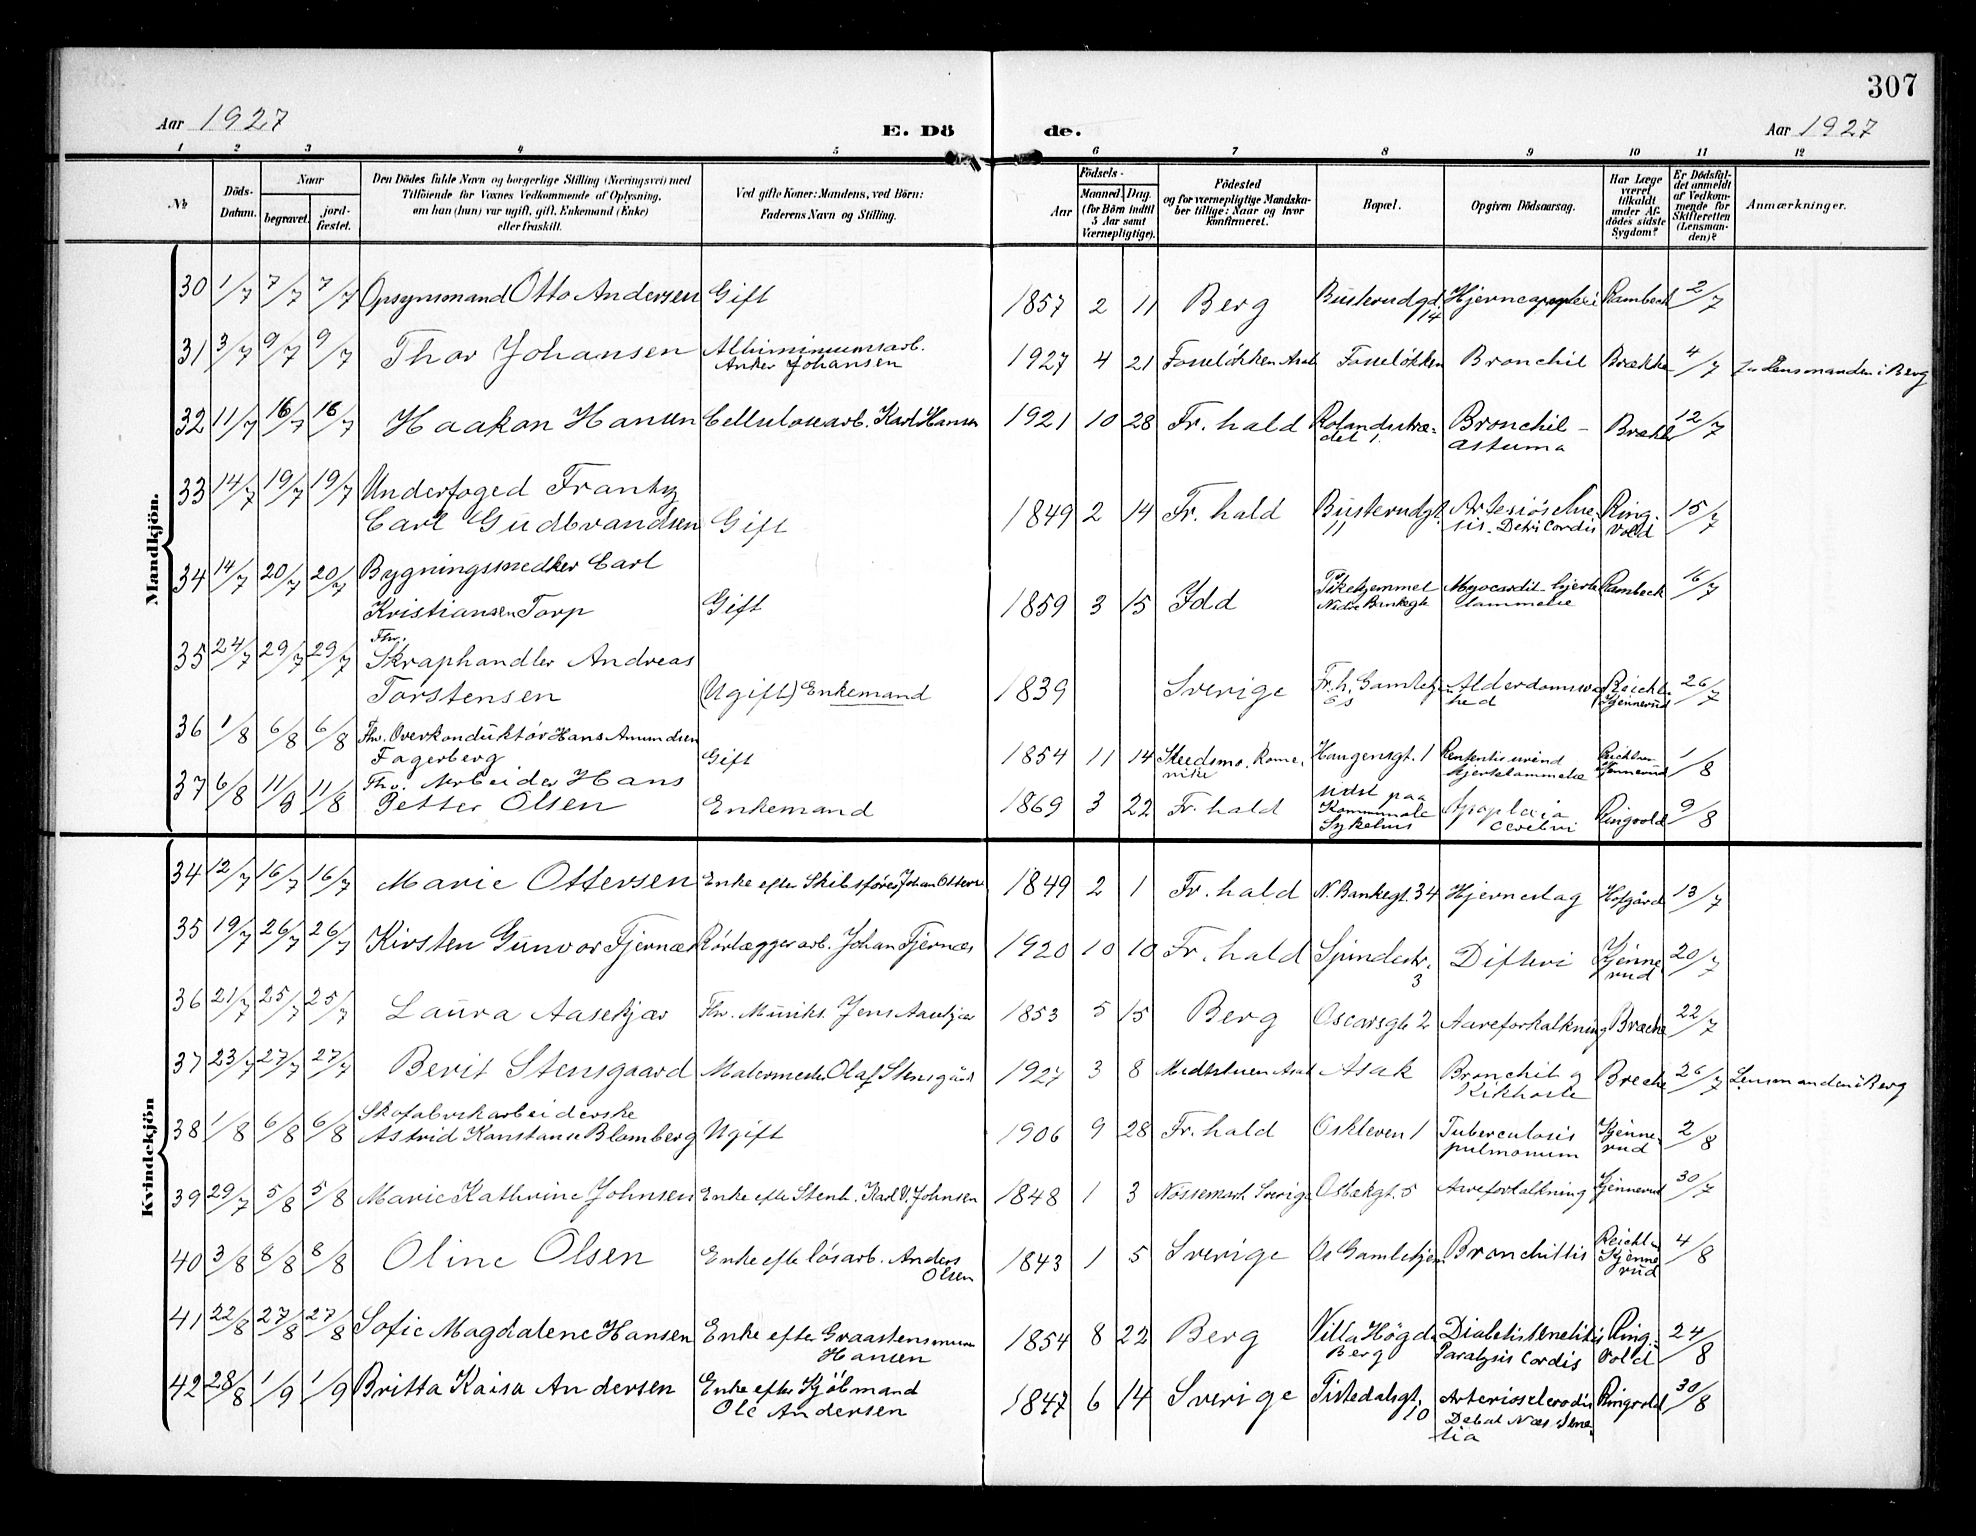 307
Aar 1927 E. Dö de. Aar 1927
1 2 3 4 5 6 7 8 9 10 11 12
№
Döds-Datum.
Naar
begravet.
jord-fæstet.
Den Dödes fulde Navn og borgerlige Stilling (Næringsvei) med
Tilföiende for Voxnes Vedkommende af Oplysning,
om han (hun) var ugift, gift, Enkemand (Enke)
eller fraskilt.
Ved gifte Koner: Mandens, ved Börn:
Faderens Navn og Stilling.
Födsels-
Aar
Maaned. Dag.
(for Börn indtil
5 Aar samt
Værnepligtige).
Födested
og for værnepligtige Mandska-
ber tillige: Naar og hvor
konfirmeret.
Bopæl.
Opgiven Dödsaarsag.
Har Læge
været
tilkaldt
under Af-
dödes sidste
Sygdom?
Er Dödsfal-
det anmeldt
af Vedkom-
mende for
Skifteretten
(Lensman-
den)?
Anmærkninger.
Mandkjön.
30 1/7 7/7 7/7 Opsynsmand Otto Andersen Gift 1857 2 11 Berg Busterudgd. 14 Hjerneapoplexi Rambeck 2/7
31 3/7 9/7 9/7 Thor Johansen Alluminiumsarb.
Anker Johansen 1927 4 21 Fosseløkken Asak Fosseløkken Bronchit Brække 4/7 Lensmanden i Berg
32 11/7 16/7 16/7 Haakon Hansen Cellulosearb. Karl Hansen 1921 10 28 Fr. hald Rolandsstræ-
det 1. Bronchit-
astuma 12/7
33 14/7 19/7 19/7 Underfoged Frantz
Carl Gudbrandsen Gift 1849 2 14 Fr. hald Busterudgt.
11 Detri Cordis Ring-
vold 15/7
34 14/7 20/7 20/7 Bygningssnedker Carl
Kristiansen Torp Gift 1859 3 15 Idd Myocardit-hjerte
lammelse Rambeck 16/7
35 24/7 29/7 29/7 Fhv.
Skraphandler Andreas
Torstensen (Ugift) Enkemand 1839 Sverige Fr. h. Gamlehj.
Os Alderdomssvag
hed Reichl.
Kjennerud 26/7
36 1/8 6/8 6/8 Fhv. Overkonduktör Hans Amundsen
Fagerberg Gift 1854 11 14 Skedsmo. Rome-
rike Haugensgt. 1 hjertelammelse Kjennerud 1/8
37 6/8 11/8 11/8 Fhv. Arbeider Hans
Petter Olsen Enkemand 1869 3 22 Fr. hald sidst paa
Kommunale
Sykehus Apoplexia
cerebri Ringvold 9/8
Kvindekjön
34 12/7 16/7 16/7 Marie Ottersen Enke efter Skibsfører Johan Otters 1849 2 1 Fr. hald N. Bankegt. 34 Hjerneslag Hofgård 13/7
35 19/7 26/7 26/7 Kirsten Gunvor Fjernæs Rörlæggerarb. Johan Fjernæs 1920 10 10 Fr. hald Spindestr.
3 Difteri Kjenne-
rud 20/7
36 21/7 25/7 25/7 Laura Aasekjær Fhv. Musiks. Jens Aasekjær 1853 5 15 Berg Oscarsgt 2 Aareforkalkning 22/7
37 23/7 27/7 27/7 Berit Stensgaard Malermester Olaf Stensgård 1927 3 8 Midtstuen Asak Asak Bronchit og
Kikhoste 26/7 Lensmanden i Berg
38 1/8 6/8 6/8 Skofabrikarbeiderske
Astrid Konstanse Blomberg Ugift 1906 9 28 Fr. hald Oskleven 1 Tuberculosis
pulmonum Kjenne-
rud 2/8
39 29/7 5/8 5/8 Marie Kathrine Johnsen Enke efter Stenh. Karl V. Johnsen 1848 1 3 Nössemark Sverige Osbekgt. 5 Aareforkalkning Kjennerud 30/7
40 3/8 8/8 8/8 Oline Olsen Enke efter lösarb. Anders
Olsen 1843 1 5 Sverige Os Gamlehjem Bronchittis Reichl.
Kjenne-
rud 4/8
41 22/8 27/8 27/8 Sofie Magdalene Hansen Enke efter Graastensmurer
Hansen 1854 8 22 Berg Villa Högda
Berg Diabetis
Paralysis Cordis Ring-
vold 24/8
42 28/8 1/9 1/9 Britta Kaisa Andersen Enke efter Kjöbmand
Ole Andersen 1847 6 14 Sverige Tistedalsgt.
10 Arteriosclerodis Ringvold 30/8